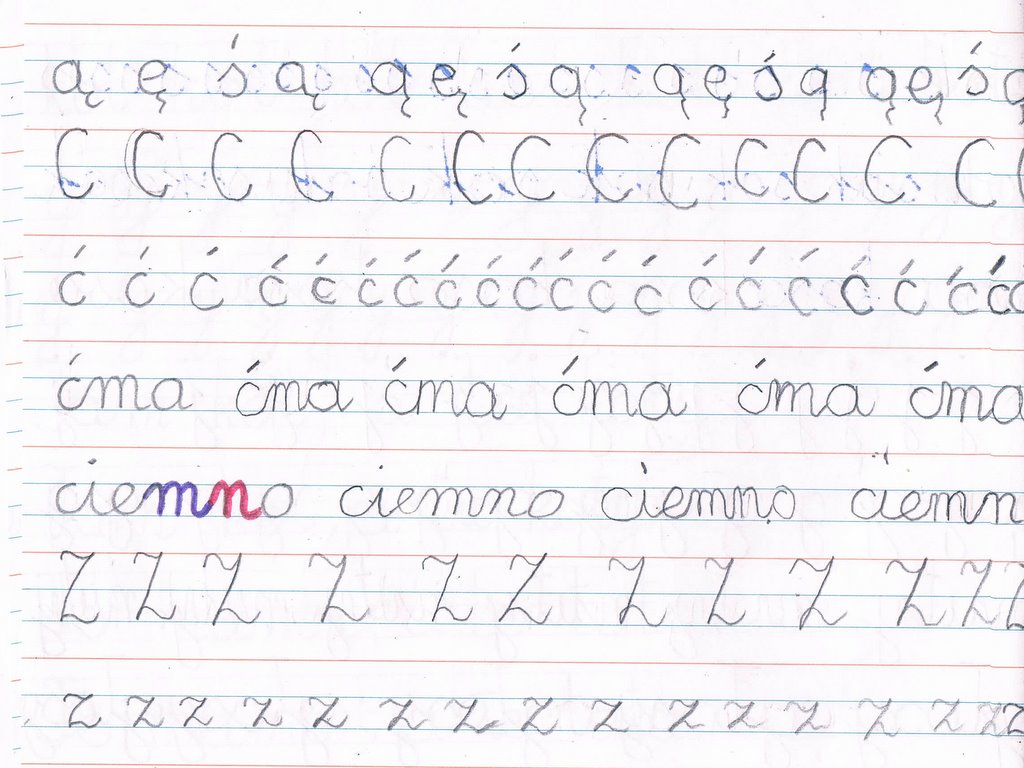 ą ę ś ą ą ę ś ą ą ę ś ą ą ę ś ą
C C C C C C C C C C C C C C
ć ć ć ć ć ć ć ć ć ć ć ć ć ć ć ć ć ć ć ć c
ćma ćma ćma ćma ćma ćma
ciemno ciemno ciemno ciemn
Z Z Z Z Z Z Z Z Z Z Z Z
z z z z z z z z z z z z z z z z